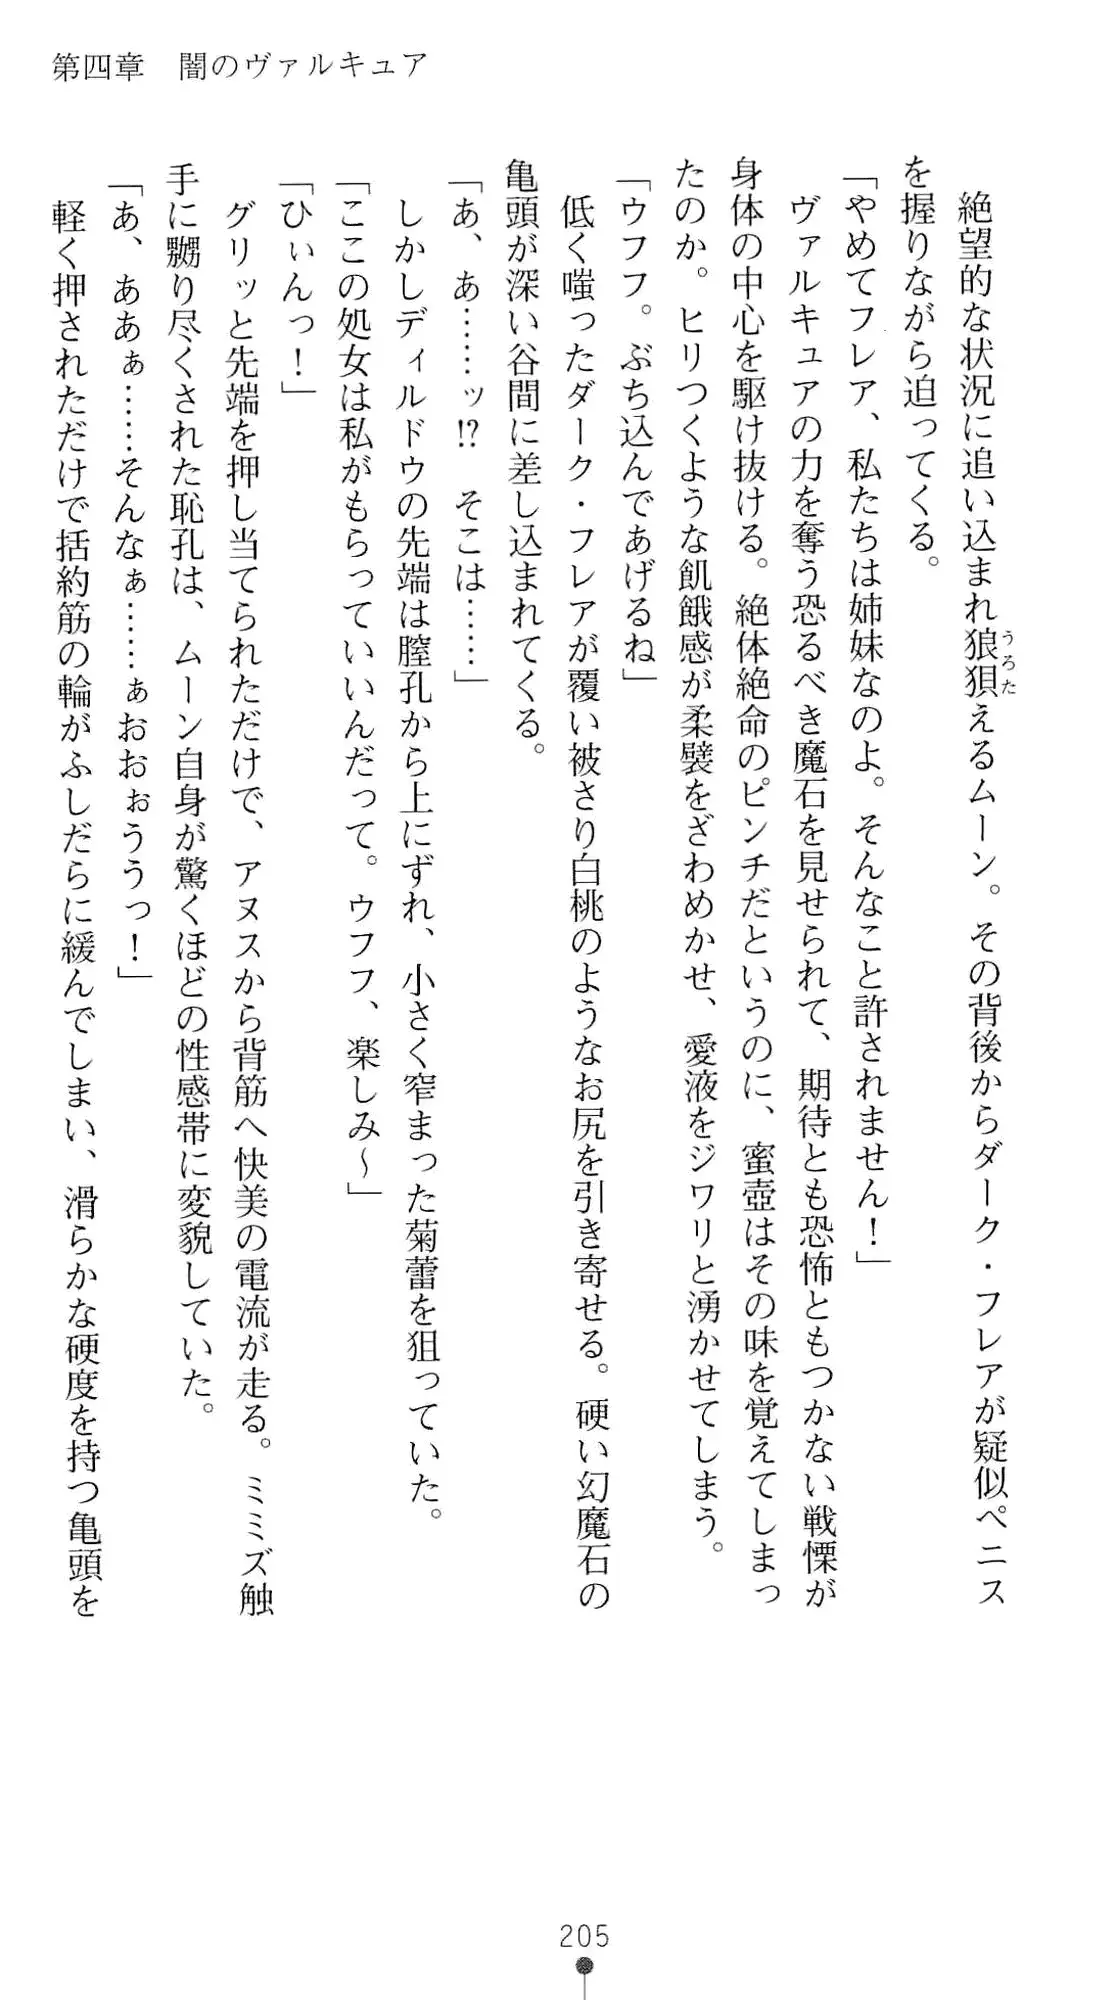 第四章　闇のヴァルキュア
　絶望的な状況に追い込まれ狼狽えるムーン。その背後からダーク・フレアが疑似ペニス
うろた
を握りながら迫ってくる。
「やめてフレア、私たちは姉妹なのよ。そんなこと許されません！」
　ヴァルキュアの力を奪う恐るべき魔石を見せられて、期待とも恐怖ともつかない戦慄が
身体の中心を駆け抜ける。絶体絶命のピンチだというのに、蜜壺はその味を覚えてしまっ
たのか。ヒリつくような飢餓感が柔襞をざわめかせ、愛液をジワリと湧かせてしまう。
「ウフフ。ぶち込んであげるね」
　低く嗤ったダーク・フレアが覆い被さり白桃のようなお尻を引き寄せる。硬い幻魔石の
亀頭が深い谷間に差し込まれてくる。
「あ、あ……ッ!?　そこは……」
　しかしディルドウの先端は膣孔から上にずれ、小さく窄まった菊蕾を狙っていた。
「ここの処女は私がもらっていいんだって。ウフフ、楽しみ～」
「ひぃんっ！」
　グリッと先端を押し当てられただけで、アヌスから背筋へ快美の電流が走る。ミミズ触
手に嬲り尽くされた恥孔は、ムーン自身が驚くほどの性感帯に変貌していた。
「あ、ああぁ……そんなぁ……ぁおおぉううっ！」
　軽く押されただけで括約筋の輪がふしだらに緩んでしまい、滑らかな硬度を持つ亀頭を
205